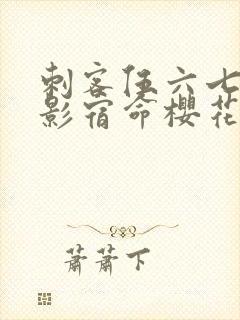 刺客伍六七
影宿命樱花
萧萧下